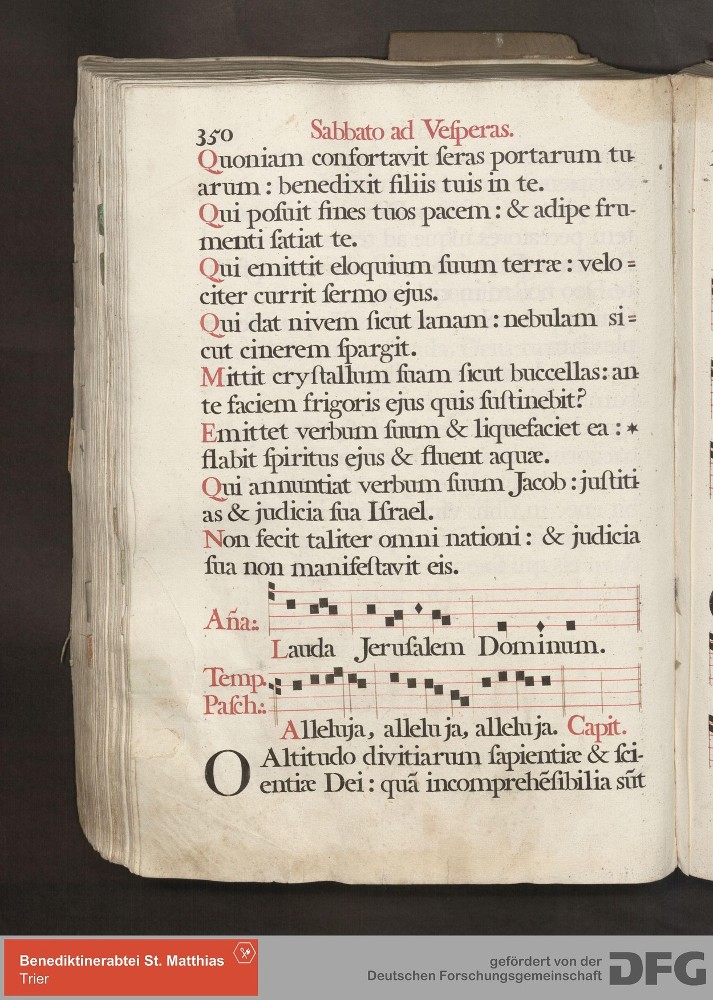 350 Sabbato ad Veſperas.
Quoniam confortavit ſeras portarum tu-
arum : benedixit filiis tuis in te.
Qui poſuit fines tuos pacem : & adipe fru-
menti ſatiat te.
Qui emittit eloquium ſuum terræ : velo=
citer currit ſermo ejus.
Qui dat nivem ſicut lanam : nebulam si=
cut cinerem ſpargit.
Mittit cryſtallum ſuam ſicut buccellas: an-
te faciem frigoris ejus quis ſuſtinebit?
Emittet verbum ſuum & liquefaciet ea : *
flabit ſpiritus ejus & fluent aquæ.
Qui annuntiat verbum ſuum Jacob : juſtiti-
as & judicia ſua Iſrael.
Non fecit taliter omni nationi : & judicia
ſua non manifeſtavit eis.
Aña:.
Lauda Jeruſalem Dominum.
Temp.
Paſch:.
Alleluja, alleluja, alleluja. Capit.
O Altitudo divitiarum ſapientiæ & ſci-
entiæ Dei : quã incomprehẽſibilia sũt
Benediktinerabtei St. Matthias
Trier
gefördert von der
Deutschen Forschungsgemeinschaft DFG